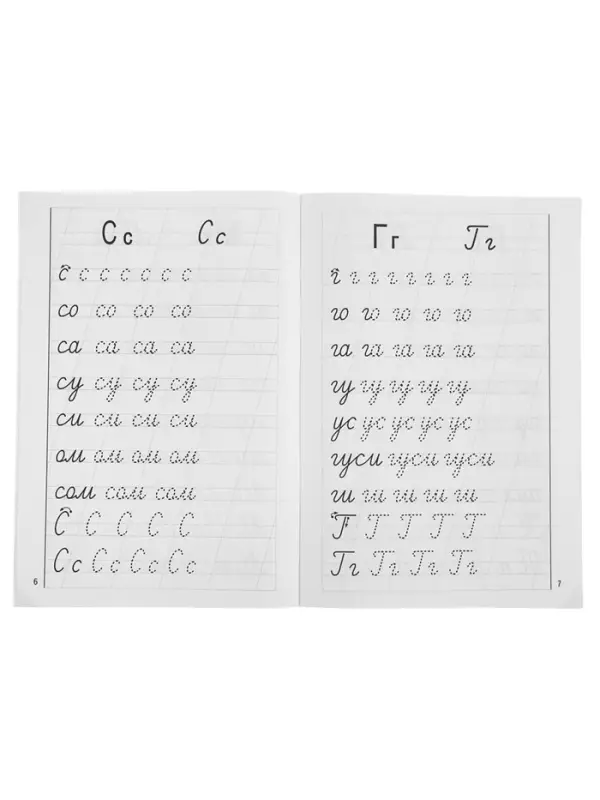 С с С с
с с с с с с с
со со со со
са са са са
су су су су
си си си си
ом ом ом ом
сом сом сом
С С С С С
Сс Сс Сс Сс
6
Г г Г г
г г г г г г г г
го го го го го
га га га га га
гу гу гу гу гу
ус ус ус ус ус
гуси гуси гуси
ги ги ги ги ги
Г Г Г Г Г
Гг Гг Гг Гг
7